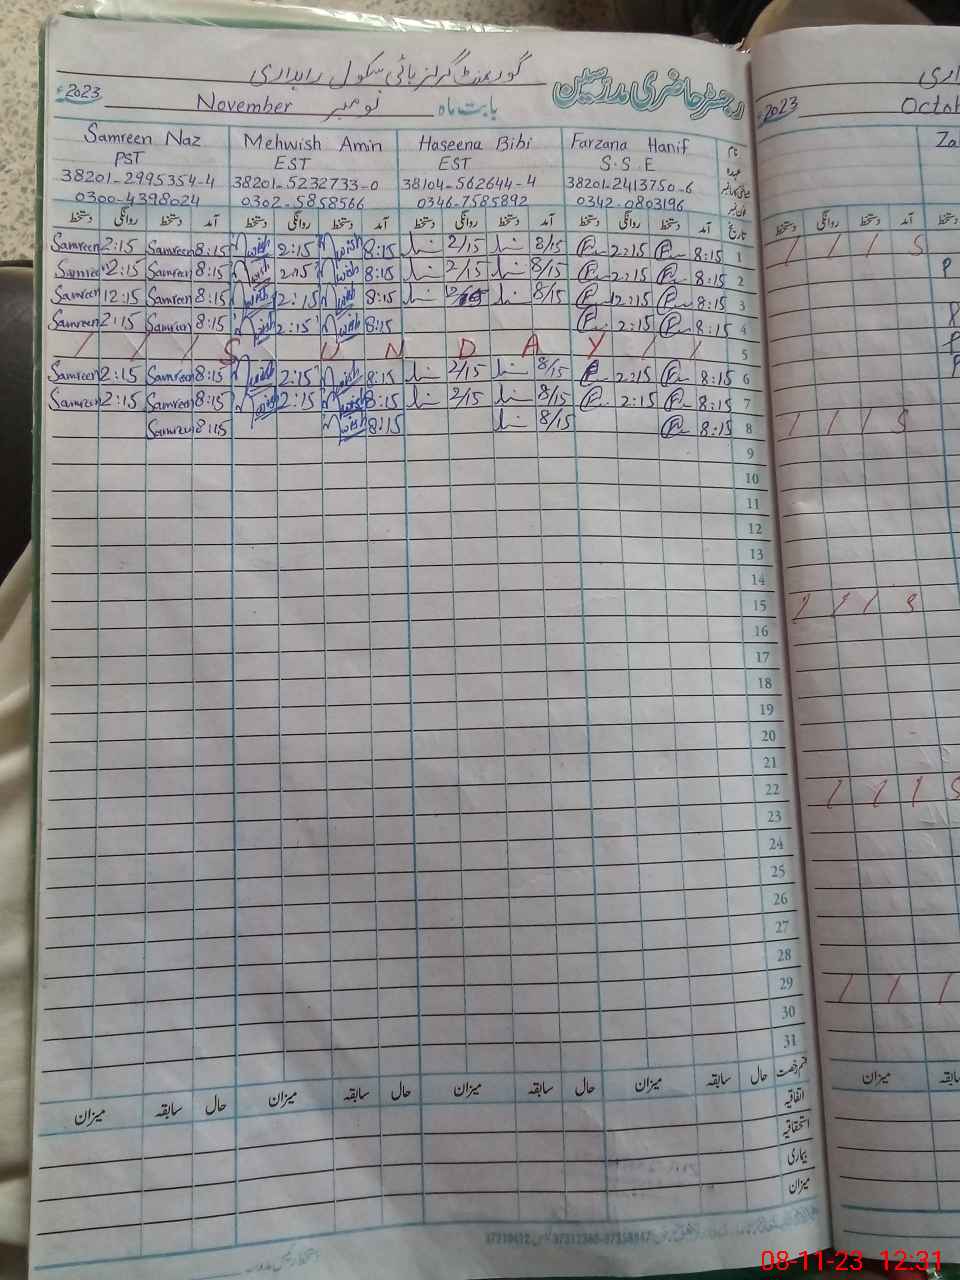 گورنمنٹ گرلز ہائی سکول راہداری
رجسٹر حاضری مدرسین
بابت ماہ نومبر November 2023ء
Samreen Naz Mehwish Amin Haseena Bibi Farzana Hanif نام
PST EST EST S.S.E عہدہ
38201-2995354-4 38201-5232733-0 38104-562644-4 38201-2413750-6
0300-4398024 0302-5858566 0346-7585892 0342-0803196
دستخط روانگی دستخط آمد دستخط روانگی دستخط آمد دستخط روانگی دستخط آمد دستخط روانگی دستخط آمد تاریخ
Samreen 2:15 Samreen 8:15 Mwish 2:15 Mwish 8:15 2/15 8/15 2:15 8:15 1
Samreen 2:15 Samreen 8:15 Mwish 2:15 Mwish 8:15 2/15 8/15 2:15 8:15 2
Samreen 12:15 Samreen 8:15 Mwish 12:15 Mwish 8:15 8/15 12:15 8:15 3
Samreen 2:15 Samreen 8:15 Mwish 2:15 Mwish 8:15 2:15 8:15 4
/ / / S U N D A Y / / 5
Samreen 2:15 Samreen 8:15 Mwish 2:15 Mwish 8:15 2/15 8/15 2:15 8:15 6
Samreen 2:15 Samreen 8:15 Mwish 2:15 Mwish 8:15 2/15 8/15 2:15 8:15 7
Samreen 8:15 Mwish 8:15 8/15 8:15 8
9
10
11
12
13
14
15
16
17
18
19
20
21
22
23
24
25
26
27
28
29
30
31
میزان سابقہ حال میزان سابقہ حال میزان سابقہ حال میزان سابقہ حال قسم رخصت
اتفاقیہ
استحقاقیہ
بیماری
میزان
2023ء Octob
Za
دستخط روانگی دستخط آمد
/ / / S
/ / / S
/ / / S
/ / / S
/ / /
میزان سابقہ
08-11-23 12:31